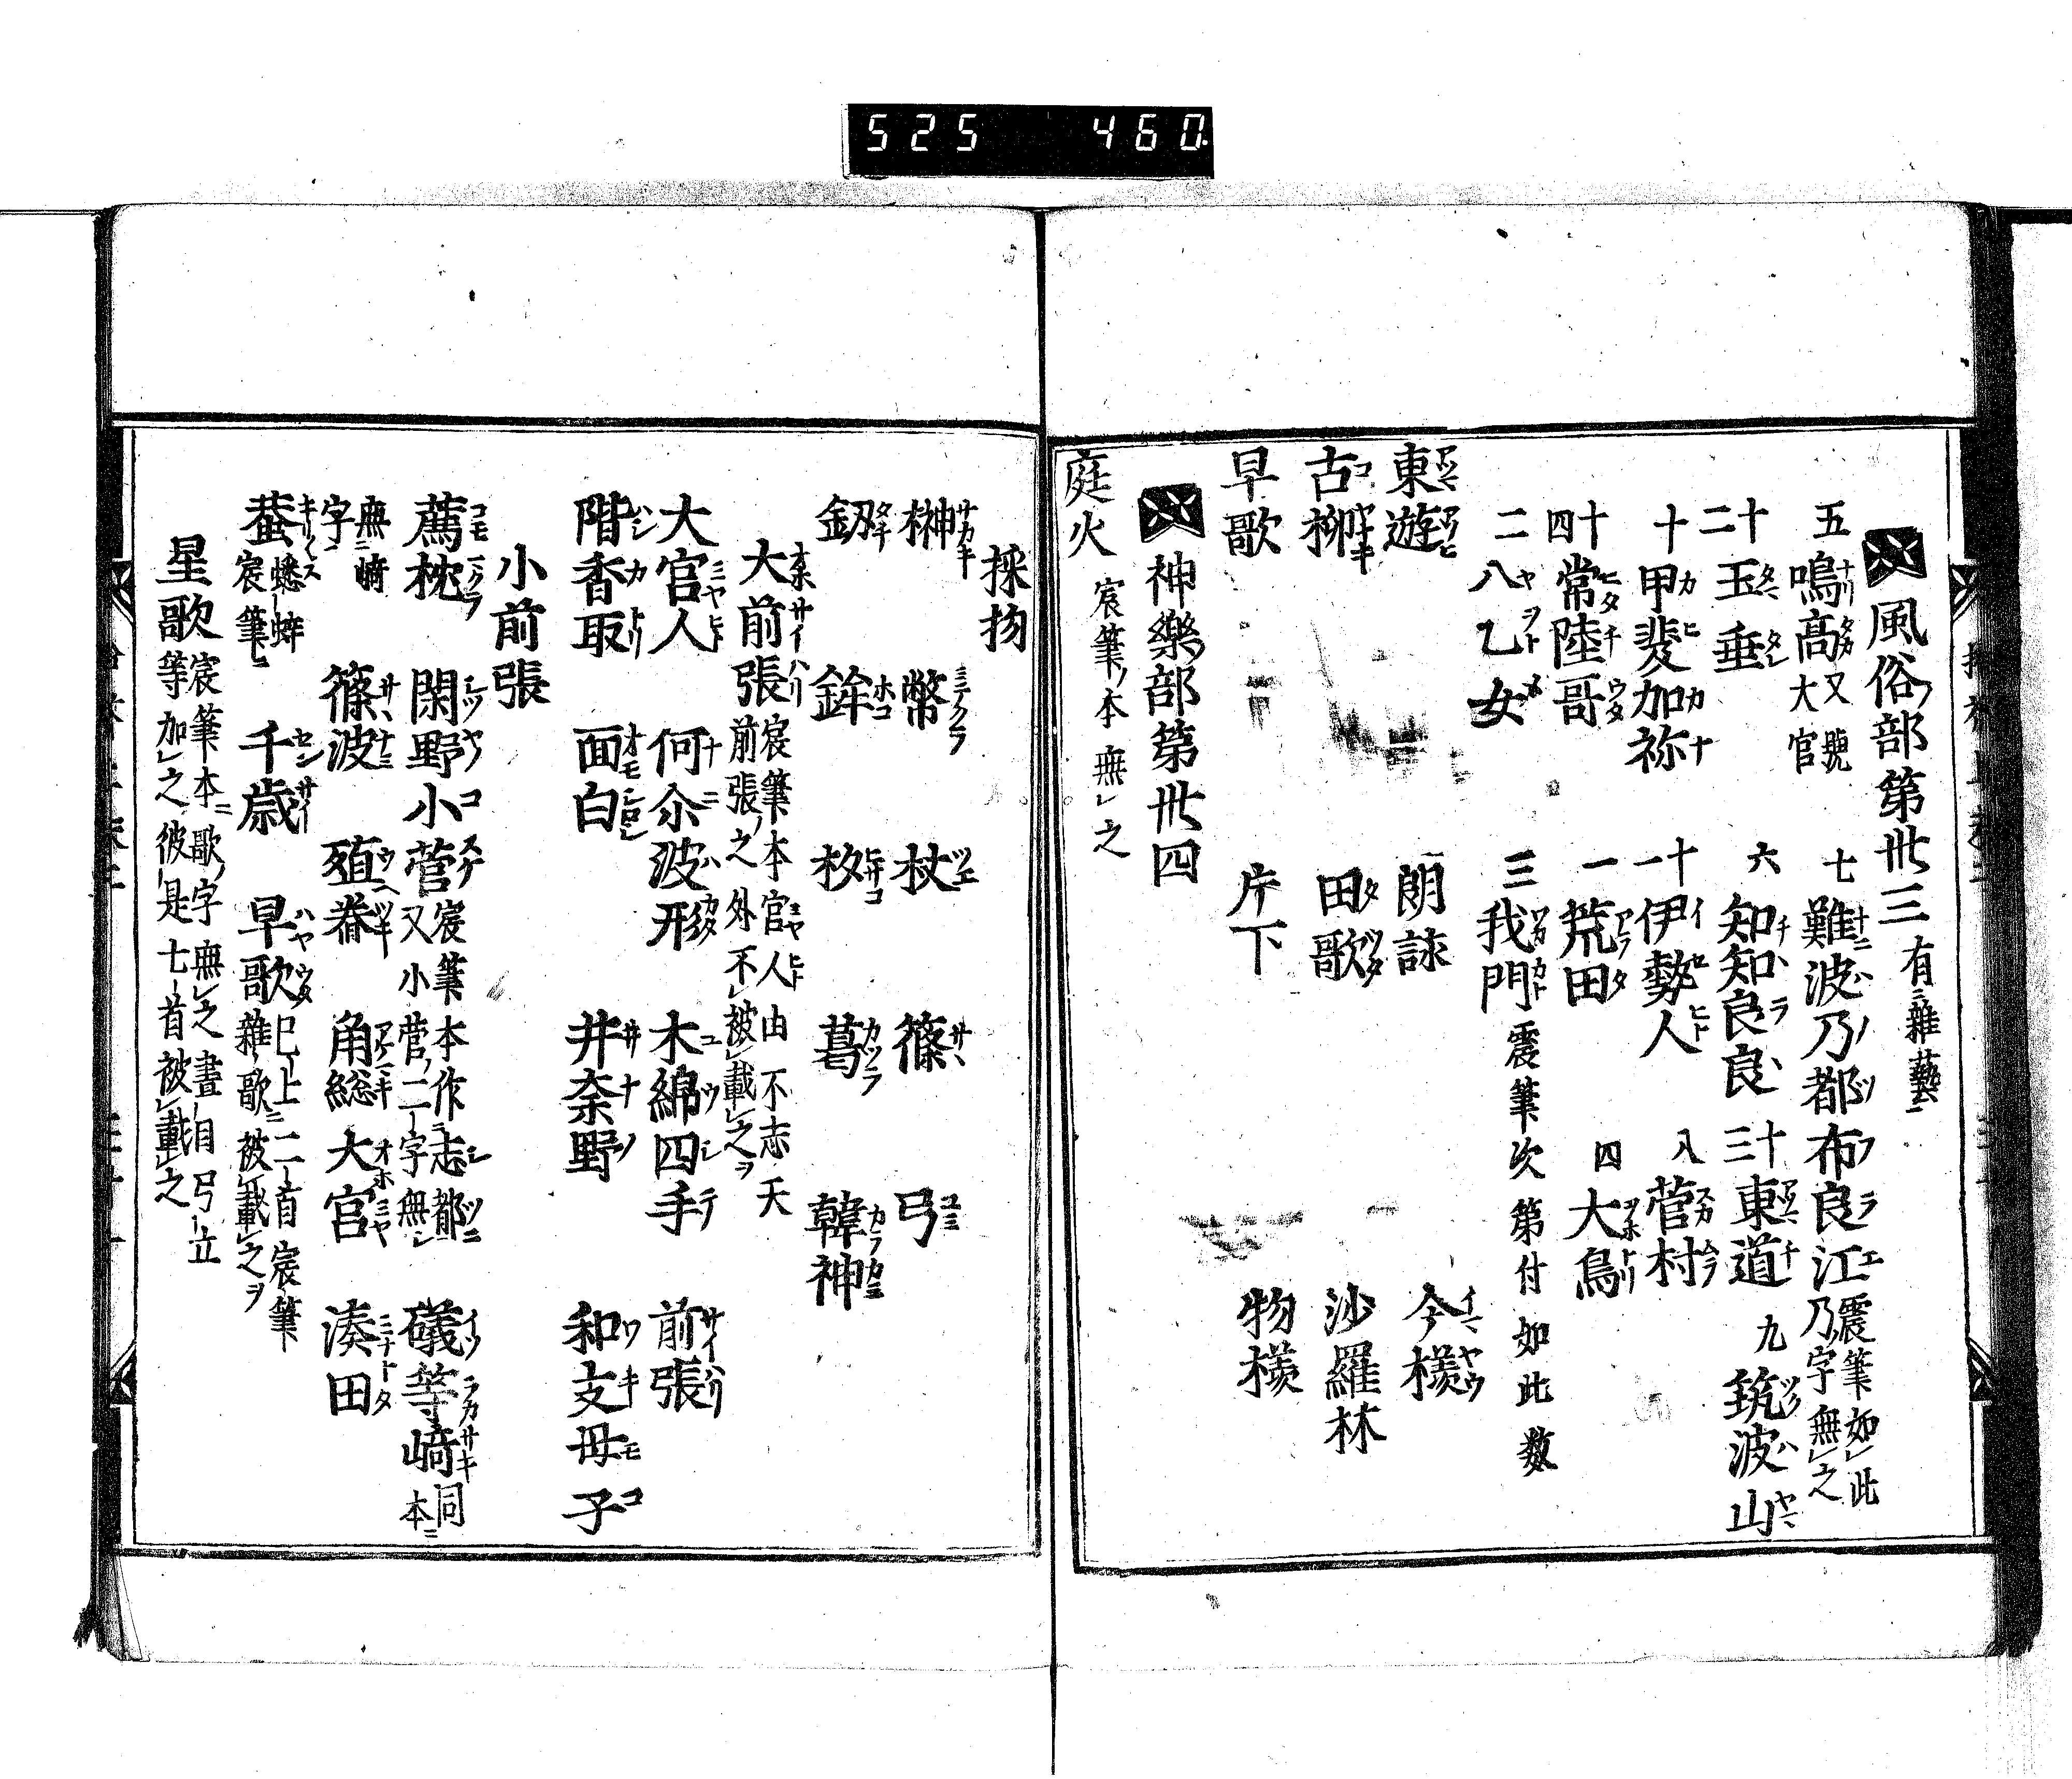 525 460
風俗部第卅三 有雜藝
五鳴高 又號大官 七難波乃都布良江 震筆如此乃字無之
十二玉垂 六知知良良 十三東道 九筑波山
十甲斐加祢 十一伊勢人 八菅村
十四常陸哥 一荒田 四大鳥
二八乙女 三我門 震筆次第付如此数
東遊 朗詠 今樣
古柳 田歌 沙羅林
早歌 片下 物樣
神樂部第卅四
庭火 宸筆ノ本無之
採物
榊 幣 杖 篠 弓
釼 鉾 杓 葛 韓神
大前張 宸筆本官人由不志天前張ノ之外不被載之ヲ
大官人 何尒波形 木綿四手 前張
階香取 面白 井奈野 和支母子
小前張
薦枕 閑野小菅 宸筆本作志都又小菅ノ二字無 礒等﨑 同本ニ
無﨑字 篠波 殖舂 角総 大宮 湊田
蛬 蟋蟀宸筆 千歳 早歌 巳上二首宸筆雜歌被載之ヲ
星歌 宸筆本ニ歌ノ字無之晝目弓立等加之彼是七首被載之